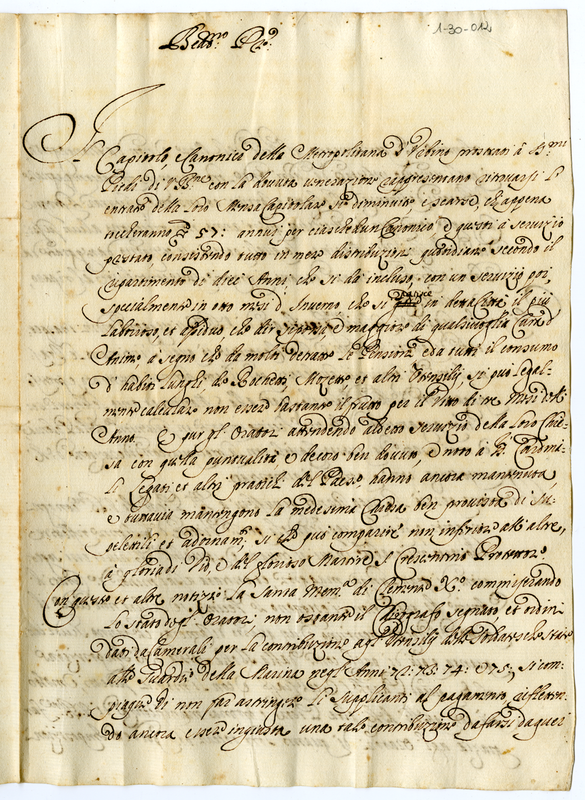 1-30-012
Beat.mo P.re
Il Capitolo, e Canonici della Metropolitana d'Urbino prostrati à S.mi
Piedi di V. B.ne con la dovuta venerazione rappresentano ritrovarsi le
entrate della loro Mensa Capitolare sì diminuite, e scarse, che appena
57: annui per ciaschedun Canonico, e questi à servizio
prestato, consistendo tutto in mere distribuzioni quotidiane secondo il
ripartimento di dieci Anni, che si dà incluso, con un servizio poi,
specialmente in otto mesi d'Inverno che si in detta Città il più
laborioso, et e maggiore di qualsivoglia Cura d'
Anime, a segno che da molti detratte le Pensioni, e da tutti il consumo
d'habiti lunghi, de Rochetti, Mozette et altri Utensilij, si può legal-
mente calcolare non essere bastante il frutto per il vitto di tre Mesi dell'
Anno. E pur gl'Oratori attendendo al detto servizio della loro Chie-
sa con quella puntualità e decoro ben dovuto, e noto à S.ri Cardina-
li Legati et altri pratici del Paese, hanno ancora mantenuta,
e tuttavia mantengono la medesima Chiesa ben provista di su-
pelettili et adornam.ti si che può comparire non inferiore all'altre,
à gloria di Dio, e del glorioso Martire S. Crescentino Protettore
Con queste et altre notizie la Santa Mem.a di Clemente X.o compassionando
lo stato degl'Oratori, non ostante il Chirografo segnato et ordini
dati da Camerali per la contribuzione agl'Utensilij delle Soldatesche state
alla Guardia della Marina negl'Anni 72: 73: 74: e 75:, si com-
piacque di non far astringere li Supplicanti al pagamento, rifletten-
do ancora essere ingiusta una tale contribuzione da farsi da quei